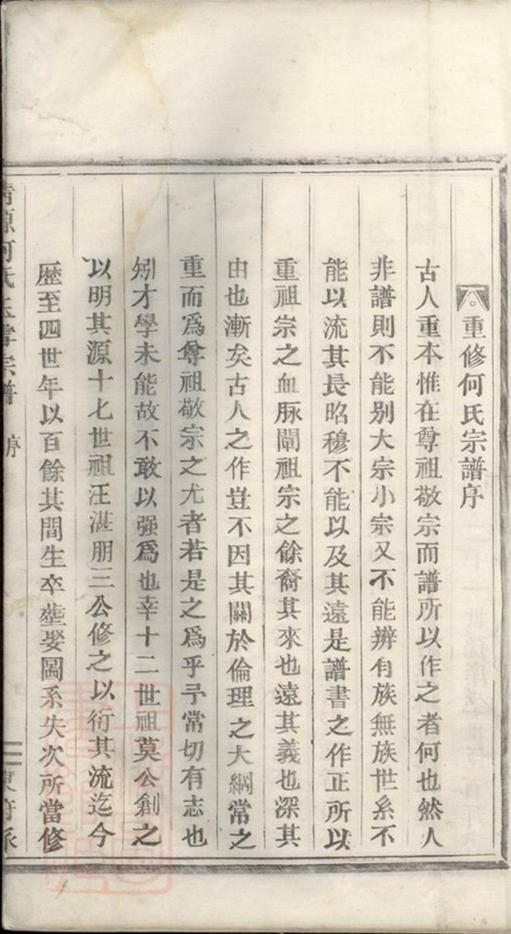 重修何氏宗譜序
古人重本惟在尊祖敬宗而譜所以作之者何也然人
非譜則不能别大宗小宗又不能辨有族無族世系不
能以流其長昭穆不能以及其遠是譜書之作正所以
重祖宗之血脉闡祖宗之餘裔其來也遠其義也深其
由也漸矣古人之作豈不因其關於倫理之大綱常之
重而爲尊祖敬宗之尤者若是之爲乎予常切有志也
矧才學未能故不敢以强爲也幸十二世祖莫公創之
以明其源十七世祖汪湛朋三公修之以衍其流迄今
歷至四世年以百餘其間生卒塟娶圖系失次所當修
源何氏宗譜 序